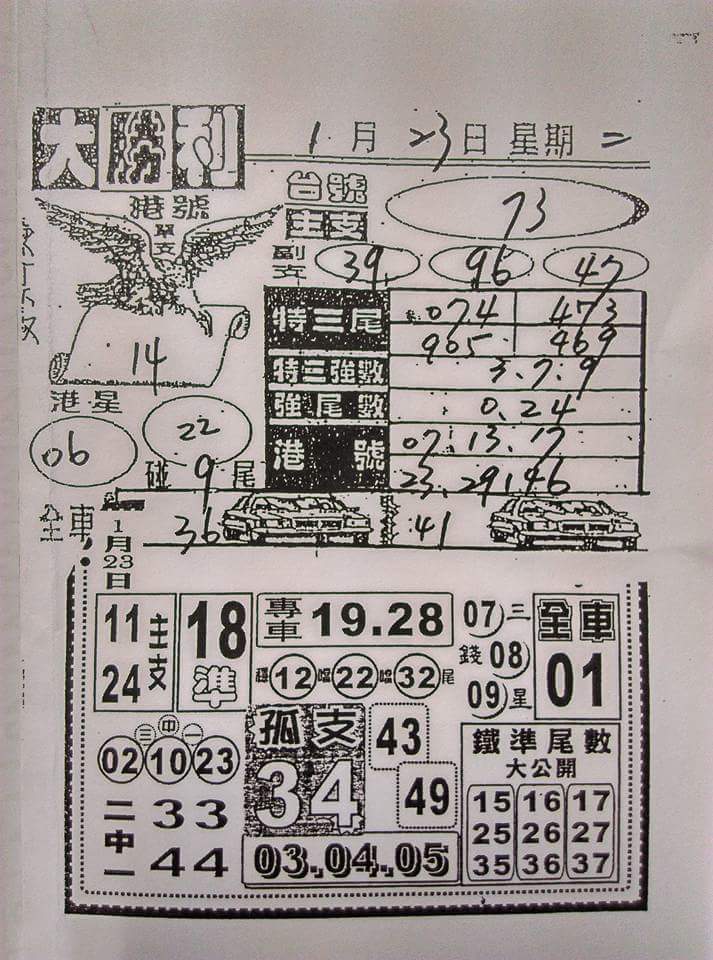 大勝利
1月23日星期二
港號
單支
14
台號
主支
73
副支
39 96 47
特三尾 074 473
905 969
特三強數 3.7.9
強尾數 0.24
港號 07.13.17
23.29.46
港星
06
22
碰9尾
全車
36 41
1月23日
11
24
主支
18
準
專車
19.28
12 22 32 尾
07 08 09
三錢星
全車
01
三中一
02 10 23
二中一
33
44
孤支
34
43
49
03.04.05
鐵準尾數
大公開
15 16 17
25 26 27
35 36 37